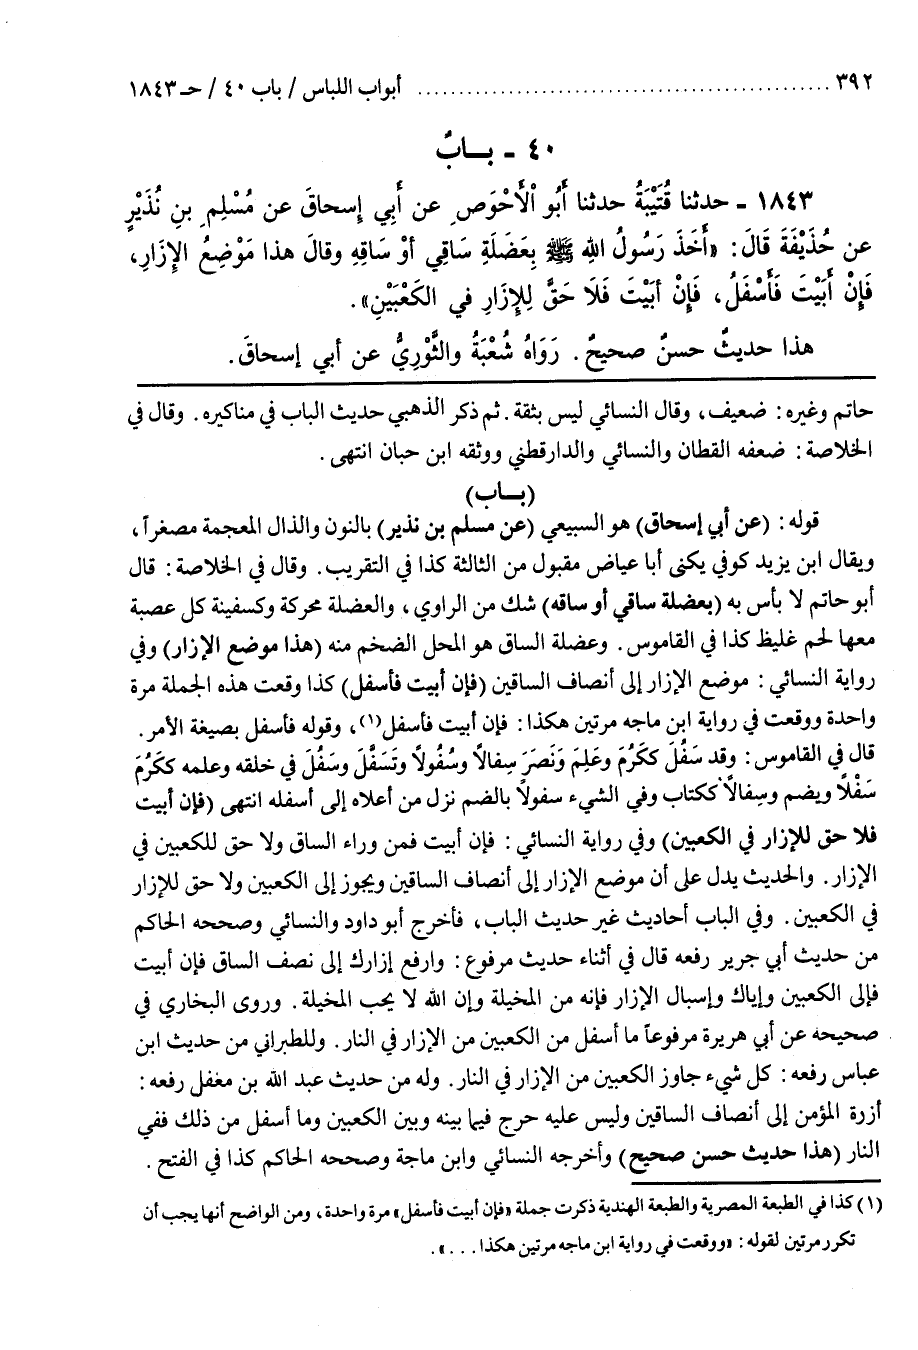 ٣٩٢ ................................................ أبواب اللباس / باب ٤٠ / حـ ١٨٤٣
٤٠ - بــابٌ
١٨٤٣ - حدثنا قُتَيْبَةُ حدثنا أَبُو الْأَحْوَصِ عن أَبِي إِسحاقَ عن مُسْلِمِ بنِ نُذَيْرٍ
عن حُذَيْفَةَ قَالَ: «أَخَذَ رَسُولُ اللهِ ﷺ بِعَضَلَةِ سَاقِي أوْ سَاقِهِ وقالَ هذا مَوْضِعُ الإِزَارِ،
فَإِنْ أَبَيْتَ فَأَسْفَلُ، فَإِنْ أبَيْتَ فَلَا حَقَّ لِلإِزَارِ في الكَعْبَيْنِ».
هذا حديثٌ حسنٌ صحيحٌ. رَوَاهُ شُعْبَةُ والثَّوْرِيُّ عن أبي إسحاقَ.
حاتم وغيره: ضعيف، وقال النسائي ليس بثقة. ثم ذكر الذهبي حديث الباب في مناكيره. وقال في
الخلاصة: ضعفه القطان والنسائي والدارقطني ووثقه ابن حبان انتهى.
(بــاب)
قوله: (عن أبي إسحاق) هو السبيعي (عن مسلم بن نذير) بالنون والذال المعجمة مصغراً،
ويقال ابن يزيد كوفي يكنى أبا عياض مقبول من الثالثة كذا في التقريب. وقال في الخلاصة: قال
أبو حاتم لا بأس به (بعضلة ساقي أو ساقه) شك من الراوي، والعضلة محركة وكسفينة كل عصبة
معها لحم غليظ كذا في القاموس. وعضلة الساق هو المحل الضخم منه (هذا موضع الإزار) وفي
رواية النسائي: موضع الإزار إلى أنصاف الساقين (فإن أبيت فأسفل) كذا وقعت هذه الجملة مرة
واحدة ووقعت في رواية ابن ماجه مرتين هكذا: فإن أبيت فأسفل(١)، وقوله فأسفل بصيغة الأمر.
قال في القاموس: وقد سَفُلَ ككَرُمَ وعَلِمَ وَنَصَرَ سِفالاً وسُفُولاً وتَسَفَّلَ وسَفُلَ في خلقه وعلمه ككَرُمَ
سَفْلاً ويضم وسِفالاً ككتاب وفي الشيء سفولاً بالضم نزل من أعلاه إلى أسفله انتهى (فإن أبيت
فلا حق للإزار في الكعبين) وفي رواية النسائي: فإن أبيت فمن وراء الساق ولا حق للكعبين في
الإزار. والحديث يدل على أن موضع الإزار إلى أنصاف الساقين ويجوز إلى الكعبين ولا حق للإزار
في الكعبين. وفي الباب أحاديث غير حديث الباب، فأخرج أبو داود والنسائي وصححه الحاكم
من حديث أبي جرير رفعه قال في أثناء حديث مرفوع: وارفع إزارك إلى نصف الساق فإن أبيت
فإلى الكعبين وإياك وإسبال الإزار فإنه من المخيلة وإن الله لا يحب المخيلة. وروى البخاري في
صحيحه عن أبي هريرة مرفوعاً ما أسفل من الكعبين من الإزار في النار. وللطبراني من حديث ابن
عباس رفعه: كل شيء جاوز الكعبين من الإزار في النار. وله من حديث عبد الله بن مغفل رفعه:
أزرة المؤمن إلى أنصاف الساقين وليس عليه حرج فيما بينه وبين الكعبين وما أسفل من ذلك ففي
النار (هذا حديث حسن صحيح) وأخرجه النسائي وابن ماجة وصححه الحاكم كذا في الفتح.
(١) كذا في الطبعة المصرية والطبعة الهندية ذكرت جملة «فإن أبيت فأسفل» مرة واحدة، ومن الواضح أنها يجب أن
تكرر مرتين لقوله: «ووقعت في رواية ابن ماجه مرتين هكذا...».